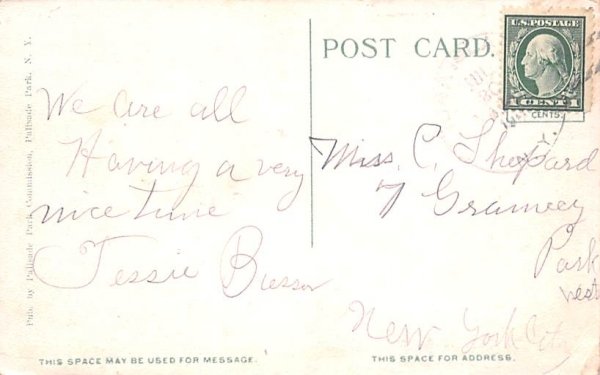 Pub. by Palisade Park Commission, Palisade Park, N. Y.
We are all
Having a very
nice time
Jessie
THIS SPACE MAY BE USED FOR MESSAGE.
POST CARD.
U.S. POSTAGE
1 CENT 1
CENTS.
Miss. C. Shepard
7 Gramercy
Park
West
New York City
THIS SPACE FOR ADDRESS.